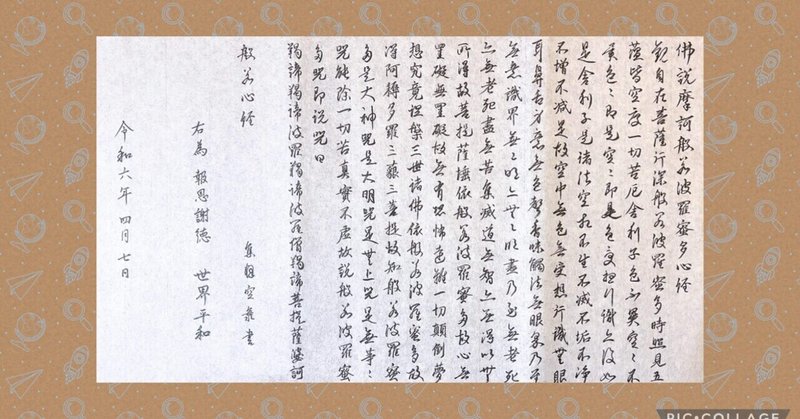 佛説摩訶般若波羅蜜多心経
観自在菩薩行深般若波羅蜜多時照見五
蘊皆空度一切苦厄舎利子色不異空々不
異色々即是空々即是色受想行識亦復如
是舎利子是諸法空相不生不滅不垢不浄
不增不減是故空中無色無受想行識無眼
耳鼻舌身意無色聲香味觸法無眼界乃至
無意識界無々明亦無々明盡乃至無老死
亦無老死盡無苦集滅道無智亦無得以無
所得故菩提薩埵依般若波羅蜜多故心無
罣礙無罣礙故無有恐怖遠離一切顛倒夢
想究竟涅槃三世諸佛依般若波羅蜜多故
得阿耨多羅三藐三菩提故知般若波羅蜜
多是大神咒是大明咒是無上咒是無等々
咒能除一切苦真實不虚故説般若波羅蜜
多咒即説咒曰
羯諦羯諦波羅羯諦波羅僧羯諦菩提薩婆訶
般若心経
書
右為 報恩謝徳 世界平和
令和六年 四月七日
PIC•COLLAGE